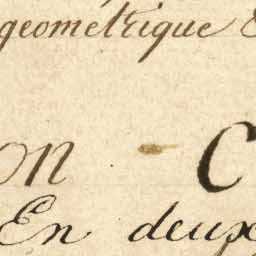 geométrique
on C
En deux